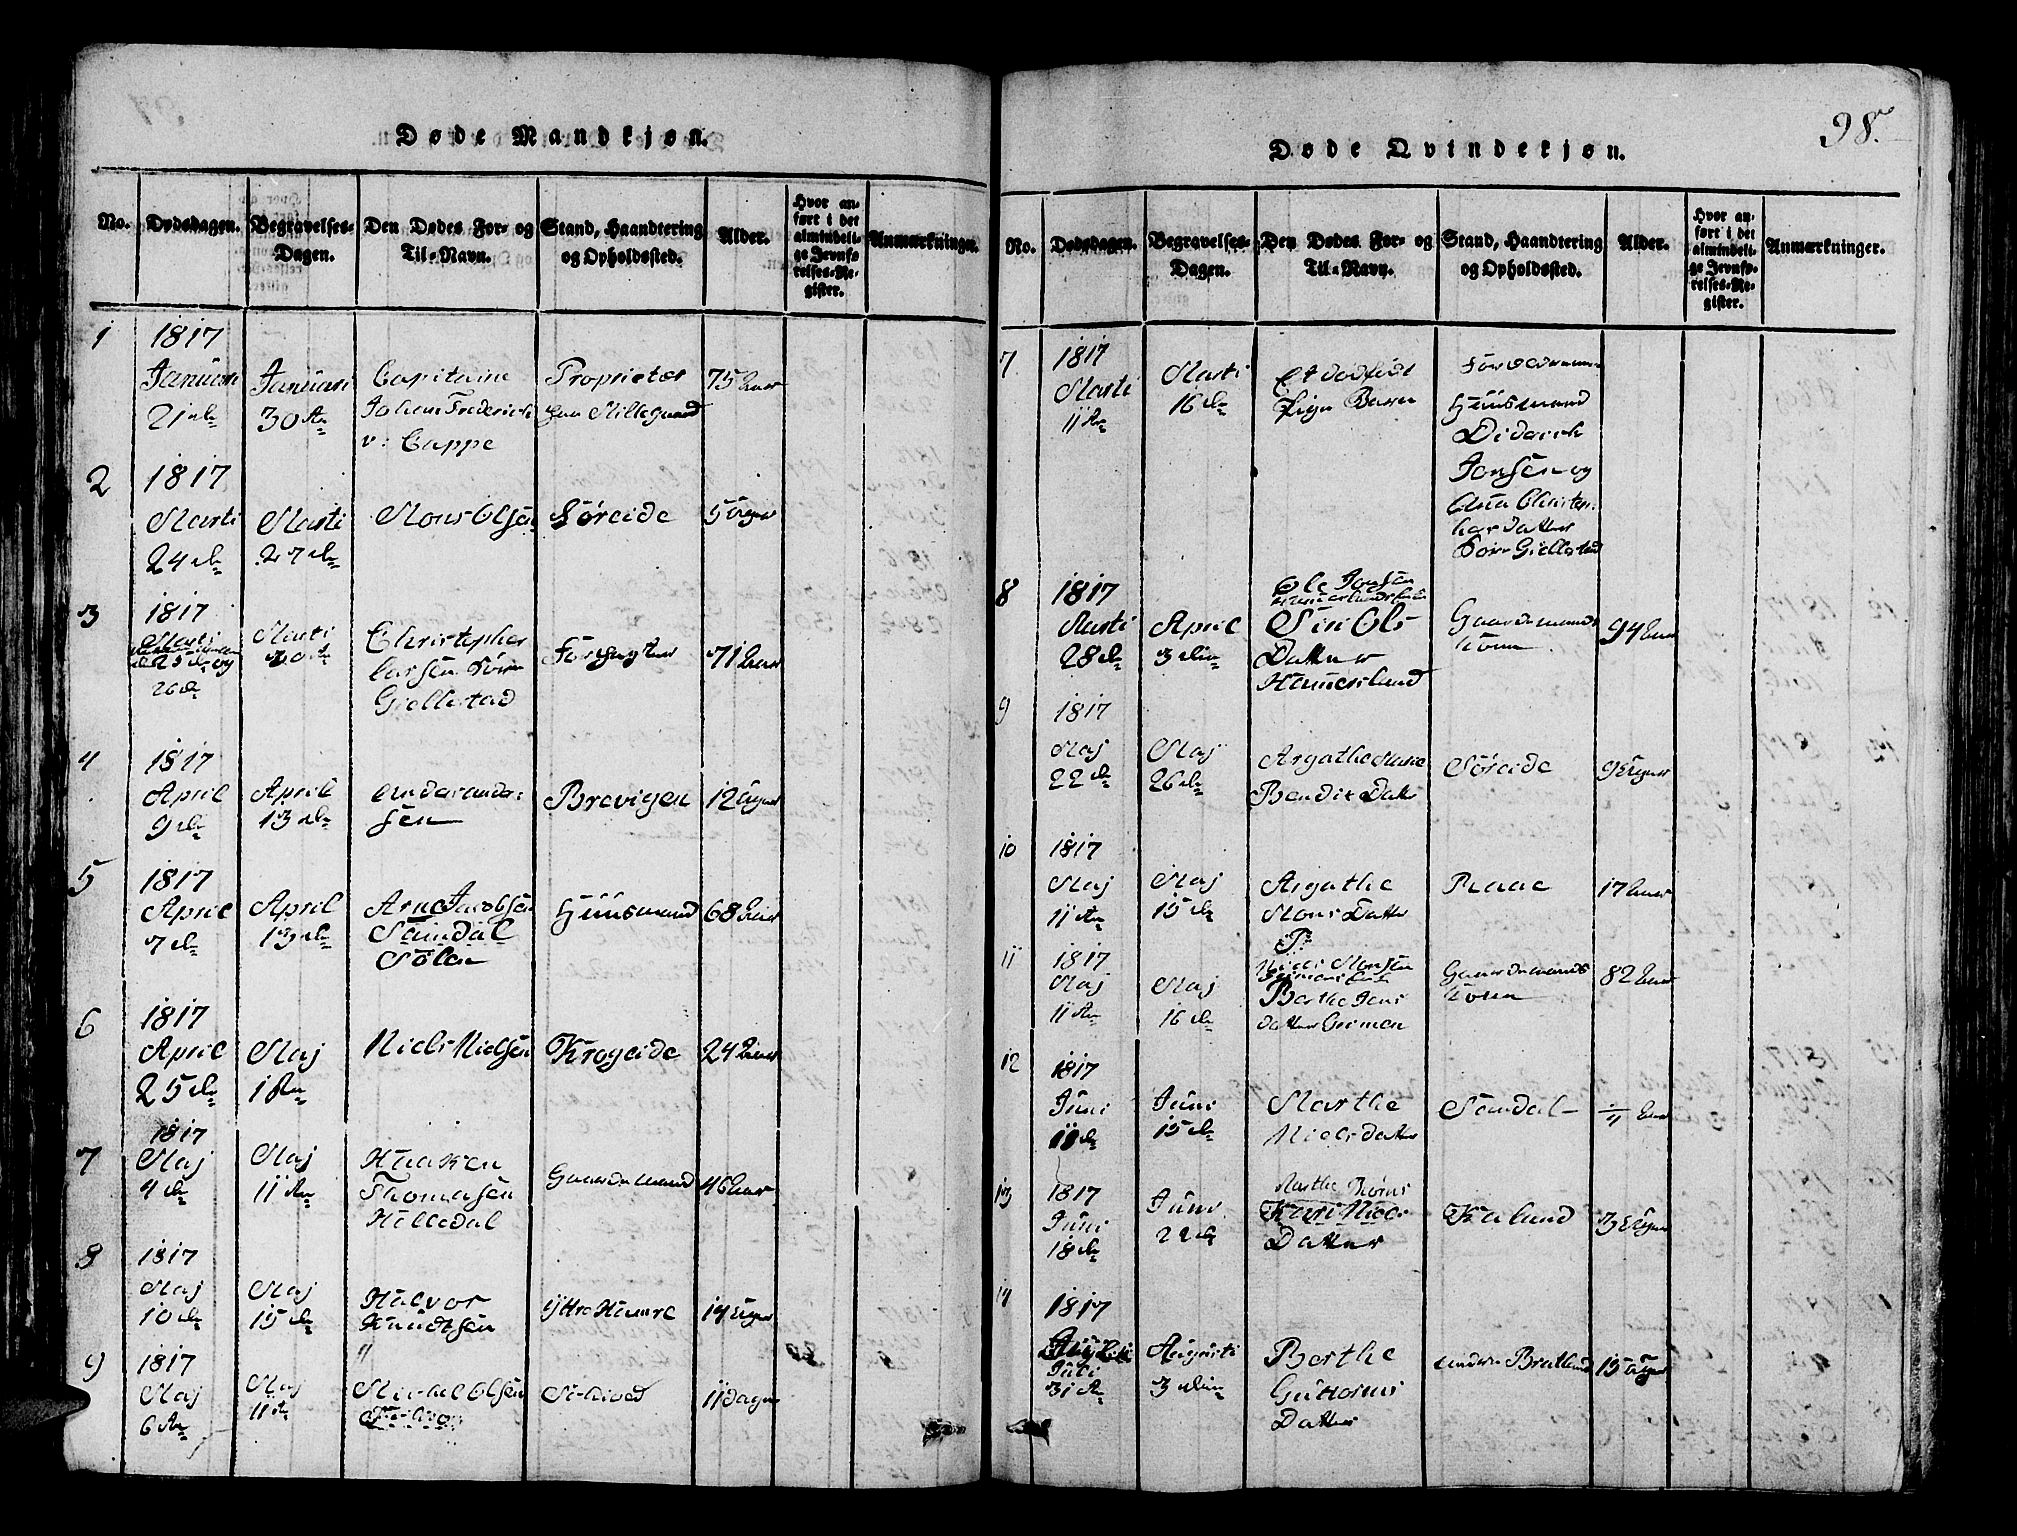 98.
Døde Mandkjøn.
No.
Dødsdagen.
Begravelses-
Dagen.
Den Dødes For- og
Til-Navn.
Stand, Haandtering
og Opholdssted.
Alder.
Hvor an-
ført i det
almindeli-
ge Jevnfø-
relses-Re-
gister.
Anmærkninger.
1
1817
Januari
21 de
Januari
30 te
Capitaine
Johan Frederich
v: Cappe
Proprietær
75 Aar
2
1817
Marti
24 de
Marti
27 de
Mons Olsen
Søreide
5 Uger
3
1817
Marti
25 de og
26 de
Marti
30 te
Christopher
Larsen Søre
Giellestad
71 Aar
4
1817
April
9 de
April
13 de
Ander Ander-
sen
Brevigen
12 Uger
5
1817
April
7 de
April
13 de
Arne Jacobsen
Samdal
Hüüsmand
68 Aar
6
1817
April
25 de
Maj
1 te
Niels Nielsen
Krogeide
24 Aar
7
1817
Maj
4 de
Maj
11 te
Haaken
Thomasen
Helledal
Gaardemand
46 Aar
8
1817
Maj
10 de
Maj
15 de
Halvor
Knudtsen
ÿttre Hamre
14 Uger
9
1817
Maj
6 te
Maj
11 te
Michel Olsen
11 dage
Døde Qvindekjøn.
No.
Dødsdagen.
Begravelses-
Dagen.
Den Dødes For- og
Til-Navn.
Stand, Haandtering
og Opholdssted.
Alder.
Hvor an-
ført i det
almindeli-
ge Jevnfø-
relses-Re-
gister.
Anmærkninger.
7
1817
Marti
11 te
Marti
16 de
Et dødfødt
Pige Barn
Hüüsmand
Diderich
Jonsen og
Ana Christop-
her Datter
Søre Giellestad
8
1817
Marti
28 de
April
3 die
Ole Jonsen
Siri Ols
Datter
Hannerland
Gaardemands
Kone
94 Aar
9
1817
Maj
22 de
Maj
26 de
Argathe Marie
Bendix Datter
Søreide
9 Uger
10
1817
Maj
11 te
Maj
15 de
Argathe
Mons Datter
Raae
17 Aar
11
1817
Maj
11 te
Maj
16 de
Niels Monsen
Berthe Jens
datter Germen
Gaardemands
Kone
82 Aar
12
1817
Juni
11 de
Juni
15 de
Marthe
Nielsdatter
Samdal
Aar
13
1817
Juni
18 de
Juni
22 de
Marthe Børns
Kari Niels
Datter
Kaland
3 Uger
14
1817
Juli
31 te
Augusti
3 die
Berthe
Guttorms
Datter
undre Bratland
15 Uger